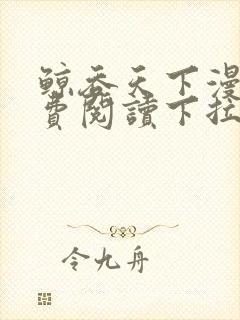 鲸吞天下漫
费阅讀下拉
令九舟